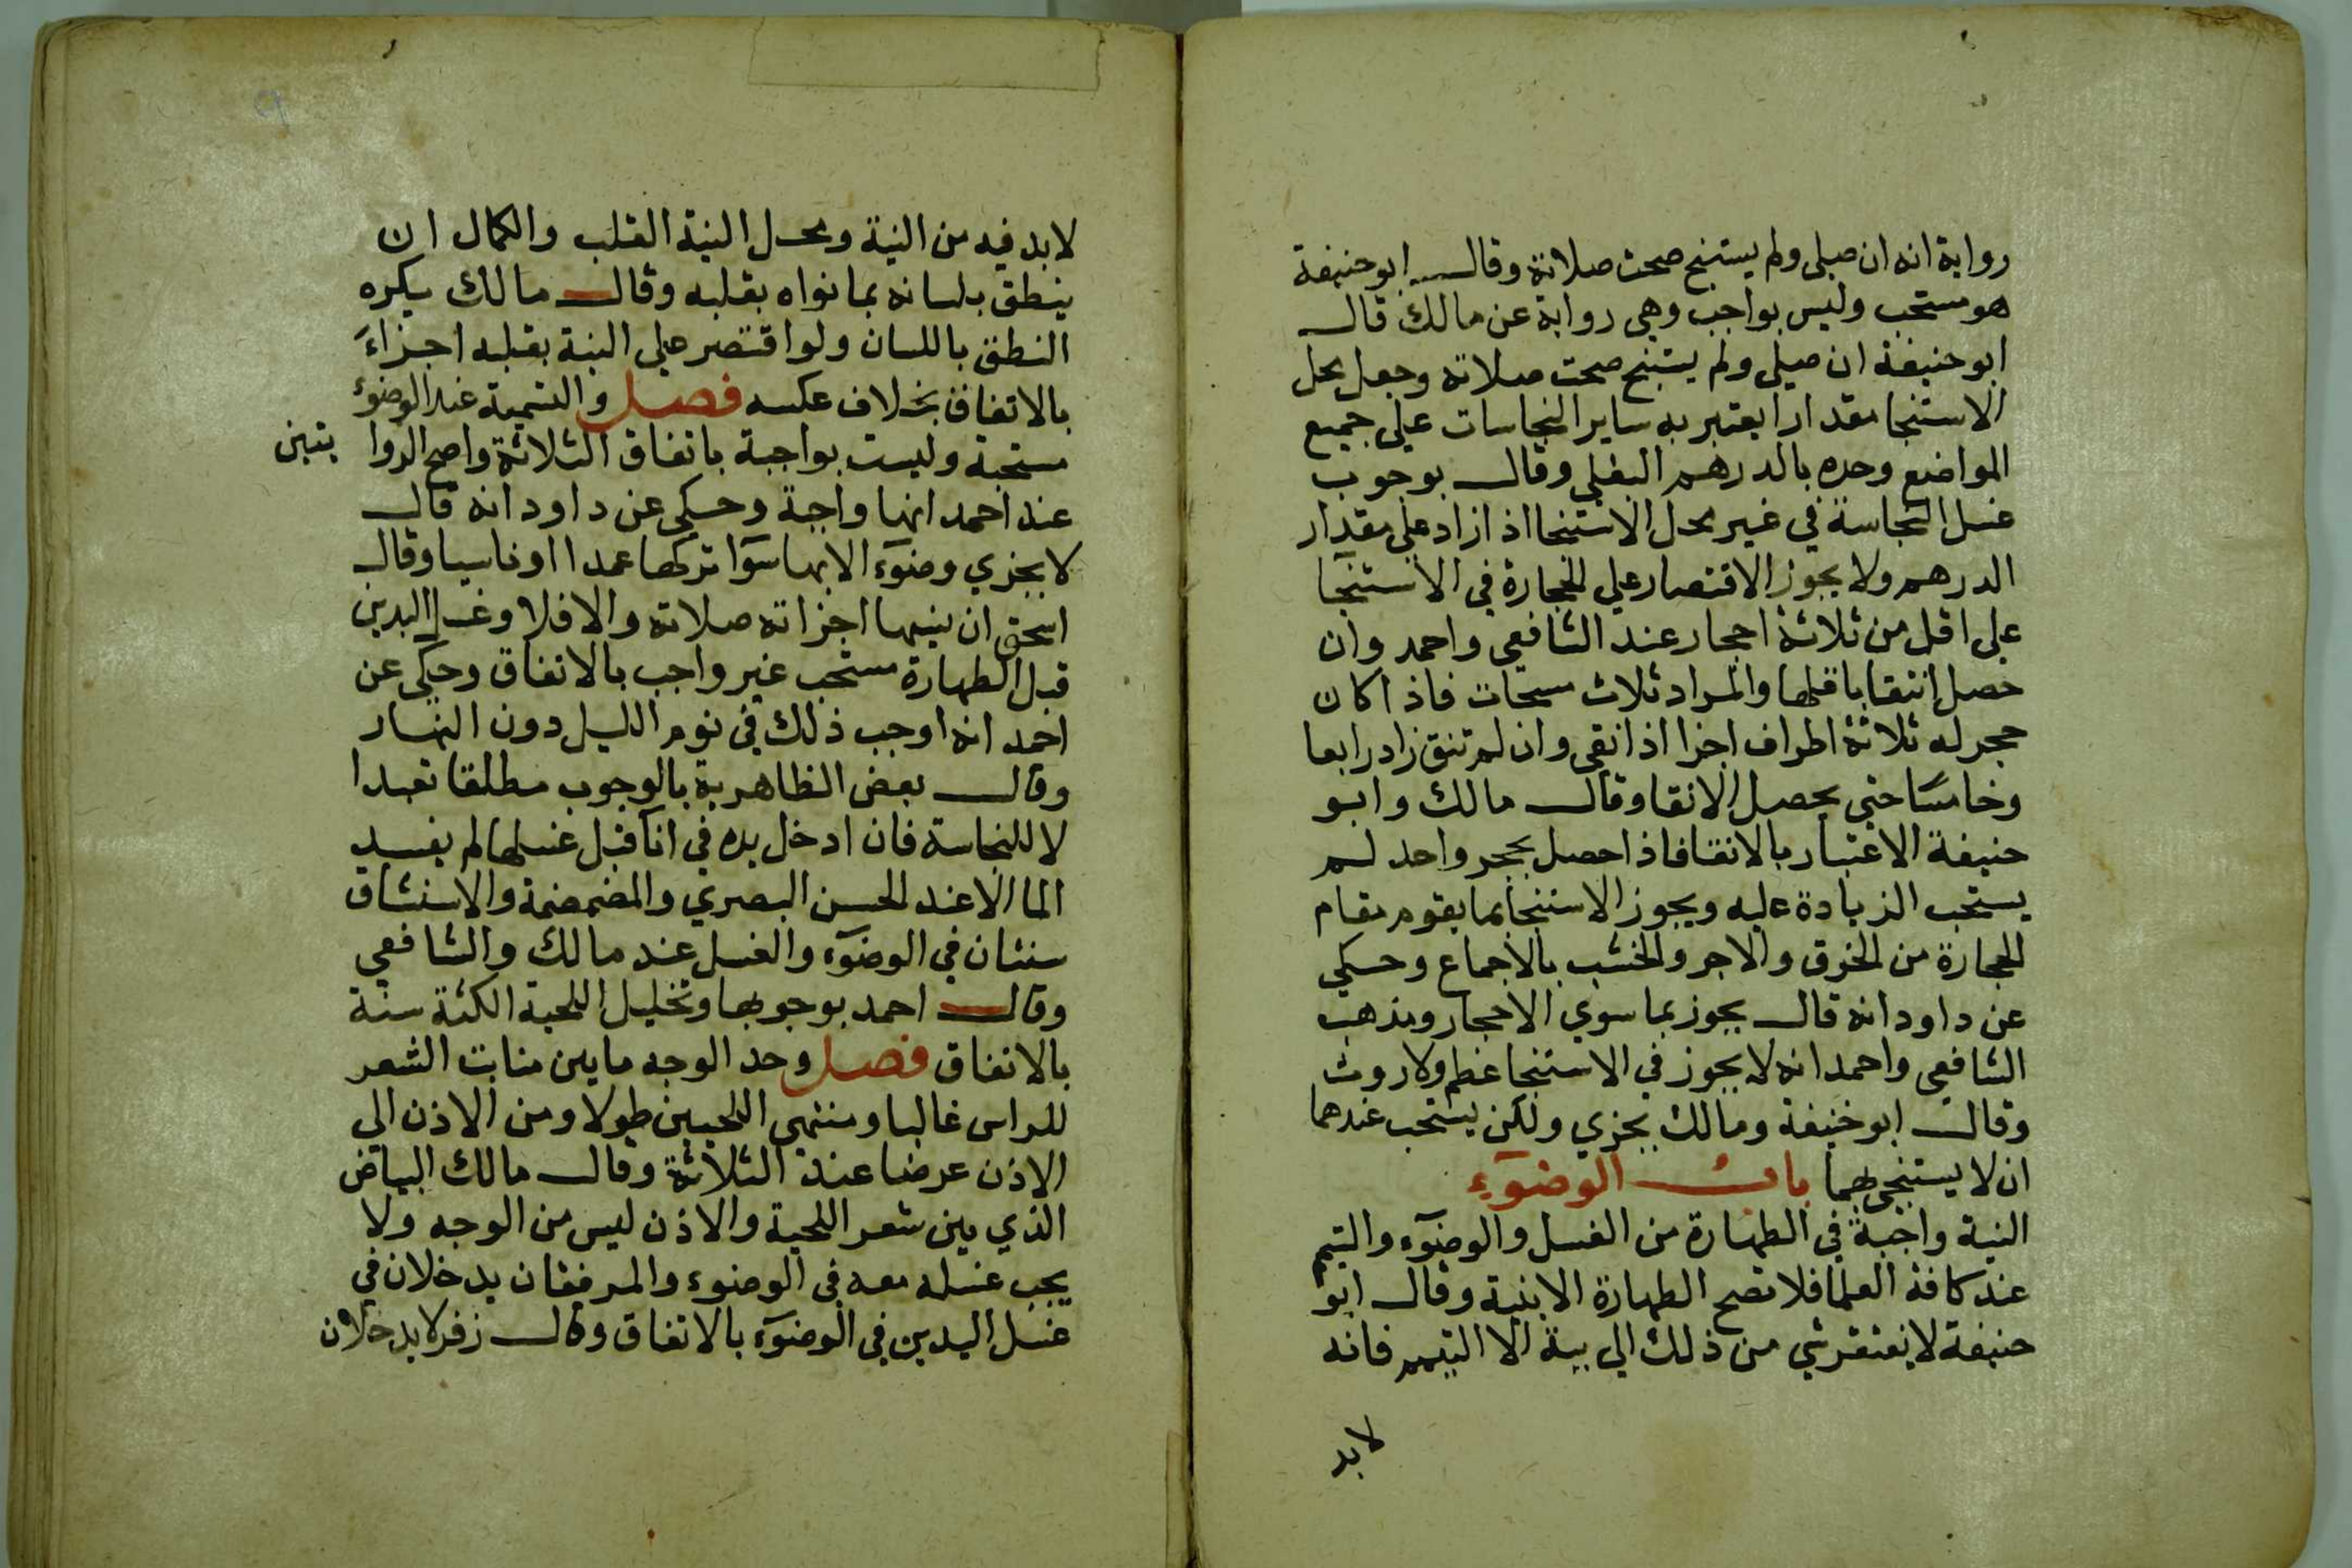 رواية انه ان صلى ولم يستنج صحت صلاته وقال ابو حنيفة
هو مستحب وليس بواجب وهي رواية عن مالك قال
ابو حنيفة ان صلى ولم يستنج صحت صلاته وجعل محل
الاستنجا مقدارا يعتبر به ساير النجاسات على جميع
المواضع وحده بالدرهم البغلي وقال بوجوب
غسل النجاسة في غير محل الاستنجا اذا زاد على مقدار
الدرهم ولا يجوز الاقتصار علي الحجارة في الاستنجا
على اقل من ثلاثة احجار عند الشافعي واحمد وان
حصل انتقا باقلها والمراد ثلاث مسحات فاذا كان
حجر له ثلاثة اطراف اجزا اذا انقى وان لم تنق زاد رابعا
وخامسا حتى يحصل الانقا وقال مالك وابو
حنيفة الاعتبار بالانقا فاذا حصل بحجر واحد لم
يستحب الزيادة عليه ويجوز الاستنجا بما يقوم مقام
الحجارة من الخرق والاجر والخشب بالاجماع وحكي
عن داود انه قال يجوز بما سوي الاحجار ومذهب
الشافعي واحمد انه لا يجوز في الاستنجا عظم ولا روث
وقال ابو حنيفة ومالك يجزي ولكن يستحب عندهما
ان لا يستنجي بهما باب الوضوء
النية واجبة في الطهارة من الغسل والوضوء والتيمم
عند كافة العلما فلا تصح الطهارة الا بنية وقال ابو
حنيفة لا يفتقر شي من ذلك الي نية الا التيمم فانه
لا بد
لا بد فيه من النية ومحل النية القلب والكمال ان
ينطق بلسانه بما نواه بقلبه وقال مالك يكره
النطق باللسان ولو اقتصر على النية بقلبه اجزاء
بالاتفاق بخلاف عكسه فصل والتسمية عند الوضوء
مستحبة وليست بواجبة باتفاق الثلاثة واصح الروا يتين
عند احمد انها واجبة وحكي عن داود انه قال
لا يجزي وضوء الا بها سوا تركها عمدا او ناسيا وقال
اسحق ان نسيها اجزاته صلاته والا فلا وغسل اليدين
قبل الطهارة مستحب غير واجب بالاتفاق وحكي عن
احمد انه اوجب ذلك في نوم الليل دون النهار
وقال بعض الظاهرية بالوجوب مطلقا تعبدا
لا للنجاسة فان ادخل يده في انا قبل غسلها لم يفسد
الما الا عند الحسن البصري والمضمضة والاستنشاق
سنتان في الوضوء والغسل عند مالك والشافعي
وقال احمد بوجوبها وتخليل اللحية الكثة سنة
بالاتفاق فصل وحد الوجه ما بين منابت الشعر
للراس غالبا ومنتهى اللحيين طولا ومن الاذن الي
الاذن عرضا عند الثلاثة وقال مالك البياض
الذي بين شعر اللحية والاذن ليس من الوجه ولا
يجب غسله معه في الوضوء والمرفقان يدخلان في
غسل اليدين في الوضوء بالاتفاق وقال زفر لا يدخلان